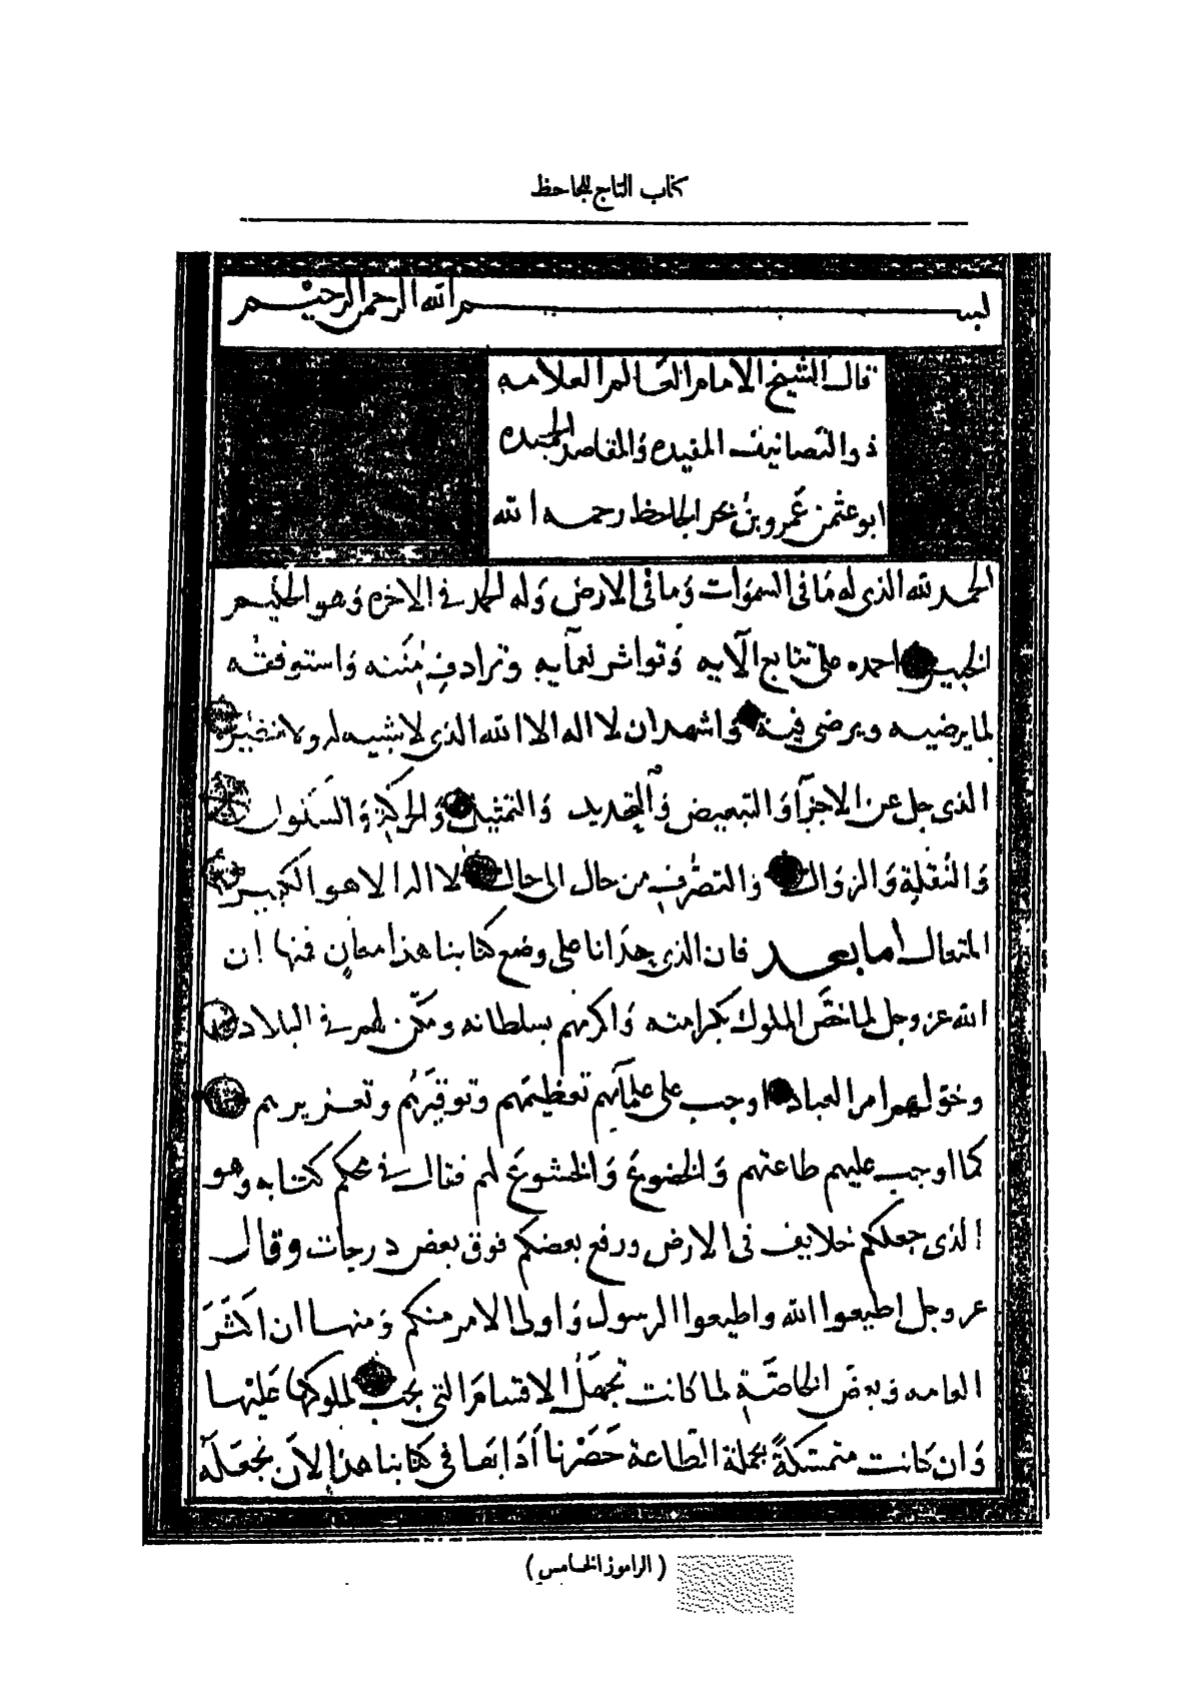 كتاب التاج للجاحظ
بسم الله الرحمن الرحيم
قال الشيخ الامام العالم العلامه
ذو التصانيف المفيده والمقاصد الحميده
ابو عثمن عمرو بن بحر الجاحظ رحمه الله
الحمد لله الذى له ما فى السموات وما فى الارض وله الحمد فى الاخره وهو الحكيم
الخبير احمده على تتابع آلايه وتواتر نعمآيه وترادف مننه واستوفقه
لما يرضيه ويرضى فيه واشهد ان لا اله الا الله الذى لا شبيه له ولا نظير
الذى جل عن الاجزآ والتبعيض والتحديد والتمثيل والحركة والسكون
والنقلة والزوال والتصرف من حال الى حال لا اله الا هو الكبير
المتعال اما بعد فان الذى حدانا على وضع كتابنا هذا معان منها ان
الله عز وجل لما خص الملوك بكرامته واكرمهم بسلطانه ومكن لهم فى البلاد
وخولهم امر العباد اوجب على علمآيهم تعظيمهم وتوقيرهم وتعزيرهم
كما اوجب عليهم طاعتهم والخضوع والخشوع لهم فقال فى محكم كتابه وهو
الذى جعلكم خلايف فى الارض ورفع بعضكم فوق بعض درجات وقال
عز وجل اطيعوا الله واطيعوا الرسول واولى الامر منكم ومنها ان اكثر
العامه وبعض الخاصة لما كانت تجهل الاقسام التى تجب لملوكها عليها
وان كانت متمسكة بجملة الطاعة حصرنا آدابها فى كتابنا هذا لان نجعله
( الراموز الخامس )